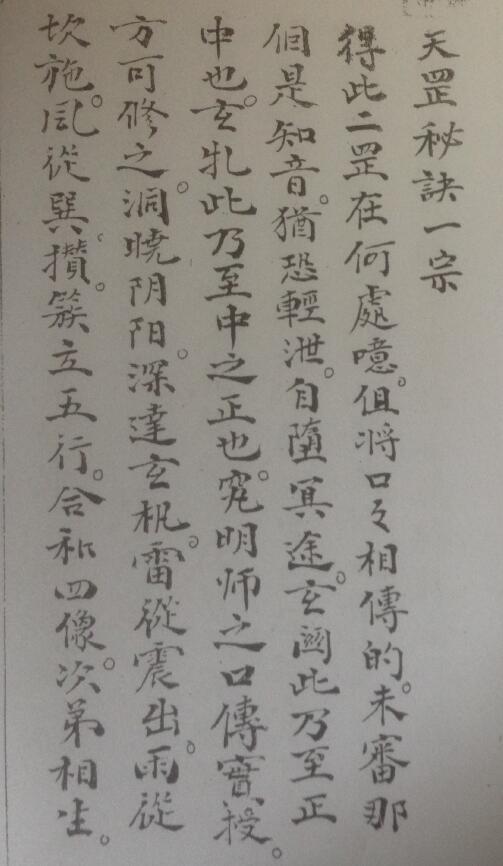 天罡秘訣一宗
得此二罡在何處噫。但将口々相傳的。未審那
個是知音。猶恐輕泄。自墮冥途。玄関此乃至正
中也。玄牝此乃至中之正也。究明师之口傳實授。
方可修之。洞曉阴阳。深達玄机。雷從震出。雨從
坎施。风從巽。攅。簇立五行。合和四像。次第相生。